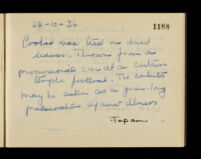 28-10-36
1188
Cooked rice tied in dried
leaves. Thrown from a
processional car at a certain
temple festival. The contents
may be eaten as a year-long
preservative against illness
Japan